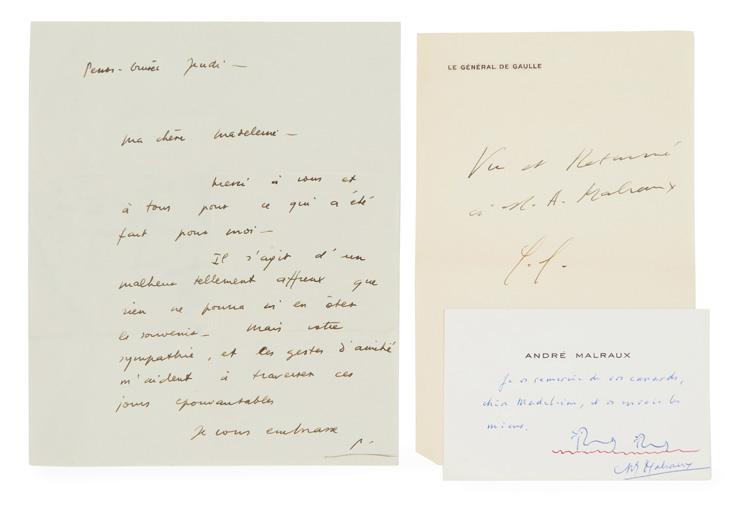 Jeudi —
Ma chère Madeleine —
Merci à vous et
à tous pour ce qui a été
fait pour moi —
Il s'agit d'un
malheur tellement affreux que
rien ne pourra ni en ôter
le souvenir — Mais votre
sympathie, et les gestes d'amitié
m'aident à traverser ces
jours épouvantables
Je vous embrasse
LE GÉNÉRAL DE GAULLE
Vu et Retourné
à M. A. Malraux
ANDRÉ MALRAUX
Je vs remercie de vos canards,
chère Madeleine, et vs envoie les
miens.
Malraux